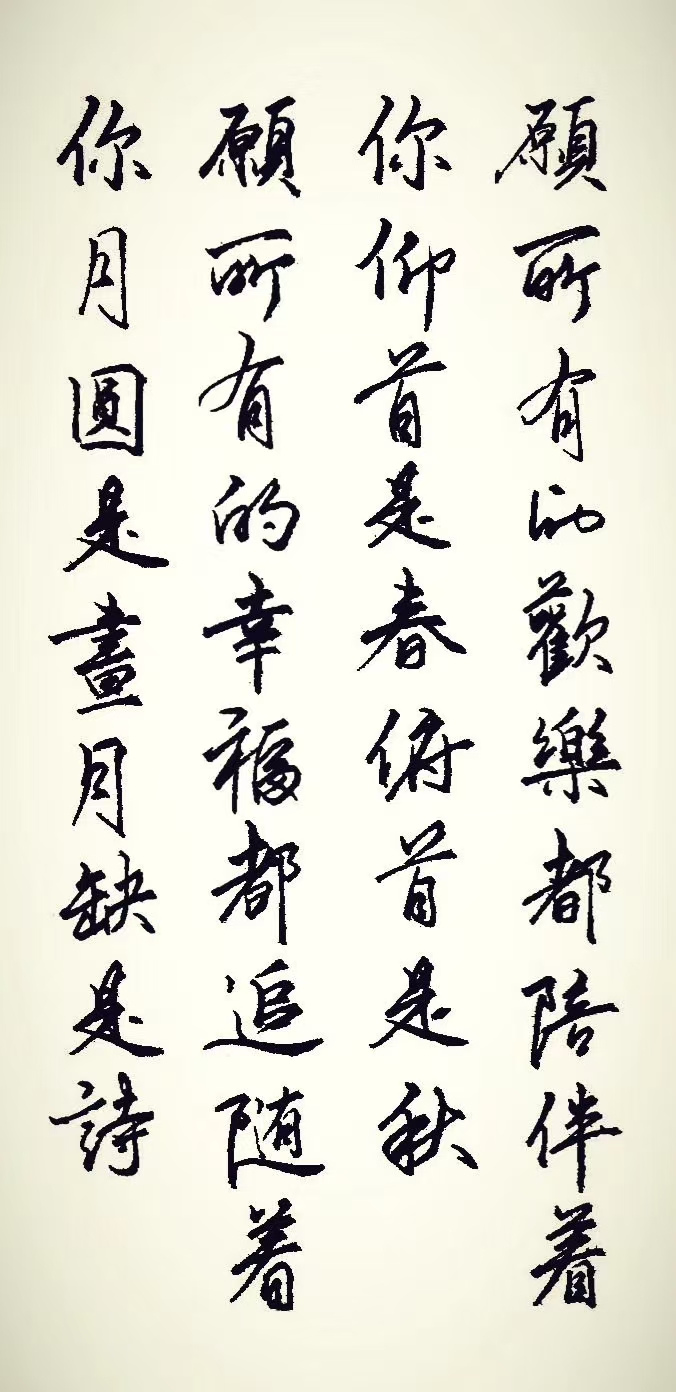 願所有的歡樂都陪伴着
你仰首是春俯首是秋
願所有的幸福都追随着
你月圓是畫月缺是詩